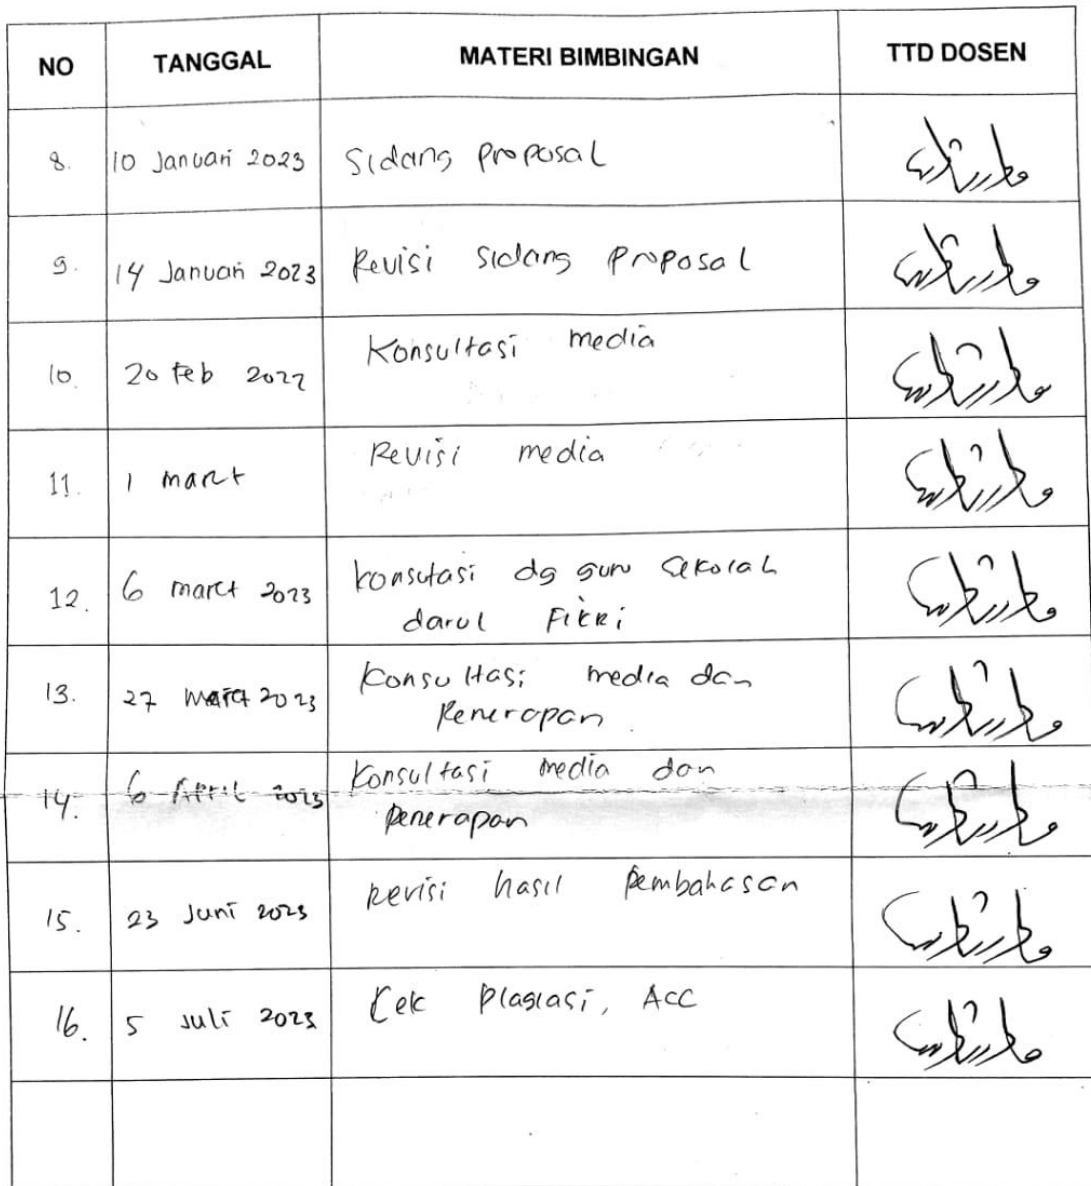 NO TANGGAL MATERI BIMBINGAN TTD DOSEN
8. 10 Januari 2023 Sidang proposal
9. 14 Januari 2023 Revisi sidang proposal
10. 20 Feb 2023 Konsultasi media
11. 1 maret Revisi media
12. 6 maret 2023 konsutasi dg guru sekolah
darul Fikri
13. 27 maret 2023 Konsultasi media dan
Penerapan
14. 6 April 2023 Konsultasi media dan
Penerapan
15. 23 Juni 2023 Revisi hasil Pembahasan
16. 5 Juli 2023 Cek Plagiasi, ACC